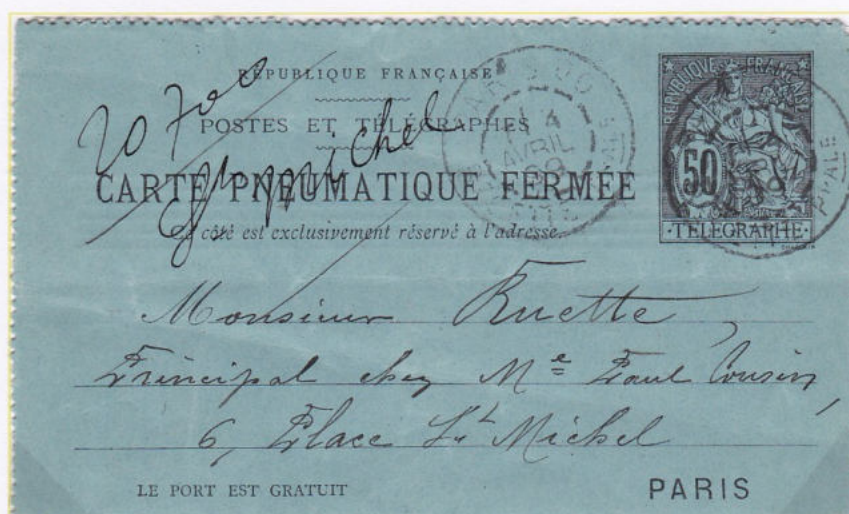 RÉPUBLIQUE FRANÇAISE
POSTES ET TÉLÉGRAPHES
CARTE PNEUMATIQUE FERMÉE
Ce côté est exclusivement réservé à l'adresse.
20 700
St Michel
AVRIL
RÉPUBLIQUE FRANÇAISE
50
TÉLÉGRAPHE
Monsieur Ruette,
Principal chez Me Paul Cousin,
6, Place St Michel
LE PORT EST GRATUIT
PARIS